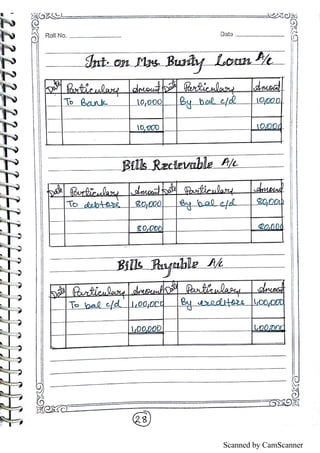 Roll No. Date
Int. on Mrs. Bunty Loan A/c
Date Particulars Amount Date Particulars Amount
To Bank 10,000 By bal c/d 10,000
10,000 10,000
Bills Recievable A/c
Date Particulars Amount Date Particulars Amount
To debtors 80,000 By bal c/d 80,000
80,000 80,000
Bills Payable A/c
Date Particulars Amount Date Particulars Amount
To bal c/d 1,00,000 By creditors 1,00,000
1,00,000 1,00,000
28
Scanned by CamScanner